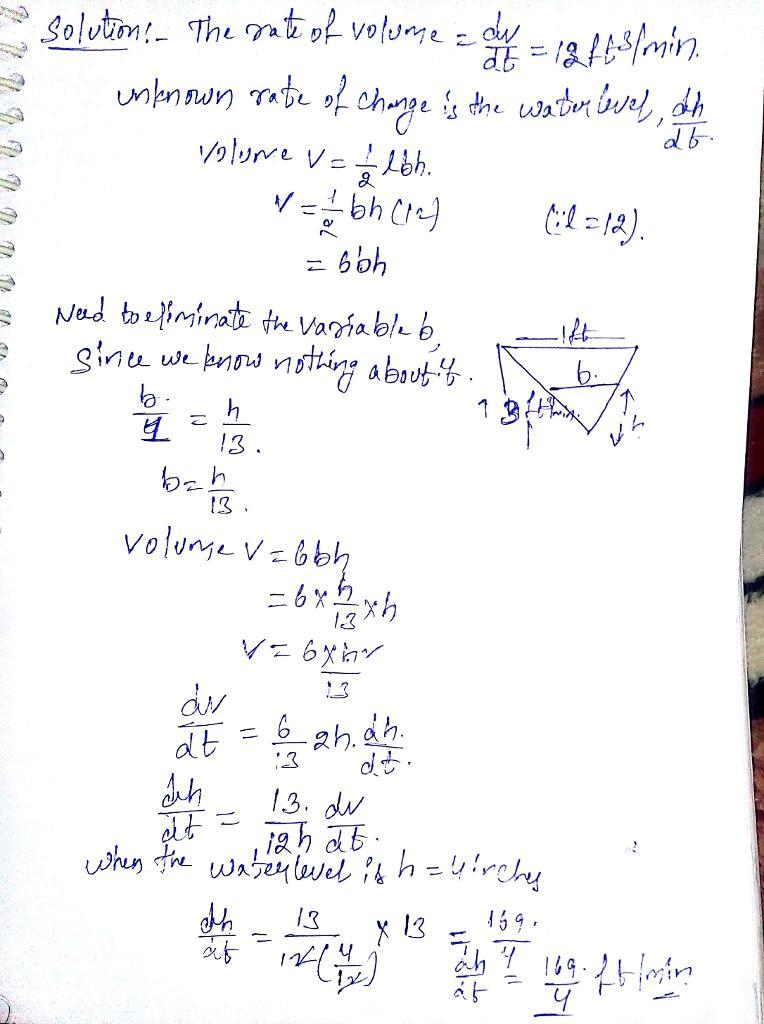 Solution:- The rate of volume = dv/dt = 12 ft³/min.
unknown rate of change is the water level, dh/dt.
Volume V = 1/2 lbh.
V = 1/2 bh (12) (∵ l = 12).
= 6bh
Need to eliminate the variable b,
Since we know nothing about it.
1ft
b.
h
b/1 = h/13.
b = h/13.
Volume V = 6bh
= 6 × h/13 × h
V = 6×h²/13
dv/dt = 6/13 2h. dh/dt.
dh/dt = 13/12h. dv/dt.
when the water level is h = 4 inches
dh/dt = 13/12(4/12) × 13 = 169/4.
dh/dt = 169/4. ft/min